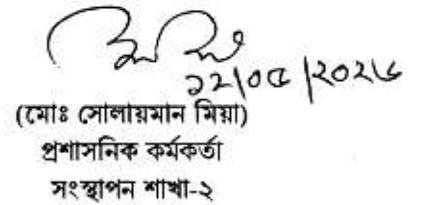 ১২/০৫/২০২৬
(মোঃ সোলায়মান মিয়া)
প্রশাসনিক কর্মকর্তা
সংস্থাপন শাখা-২